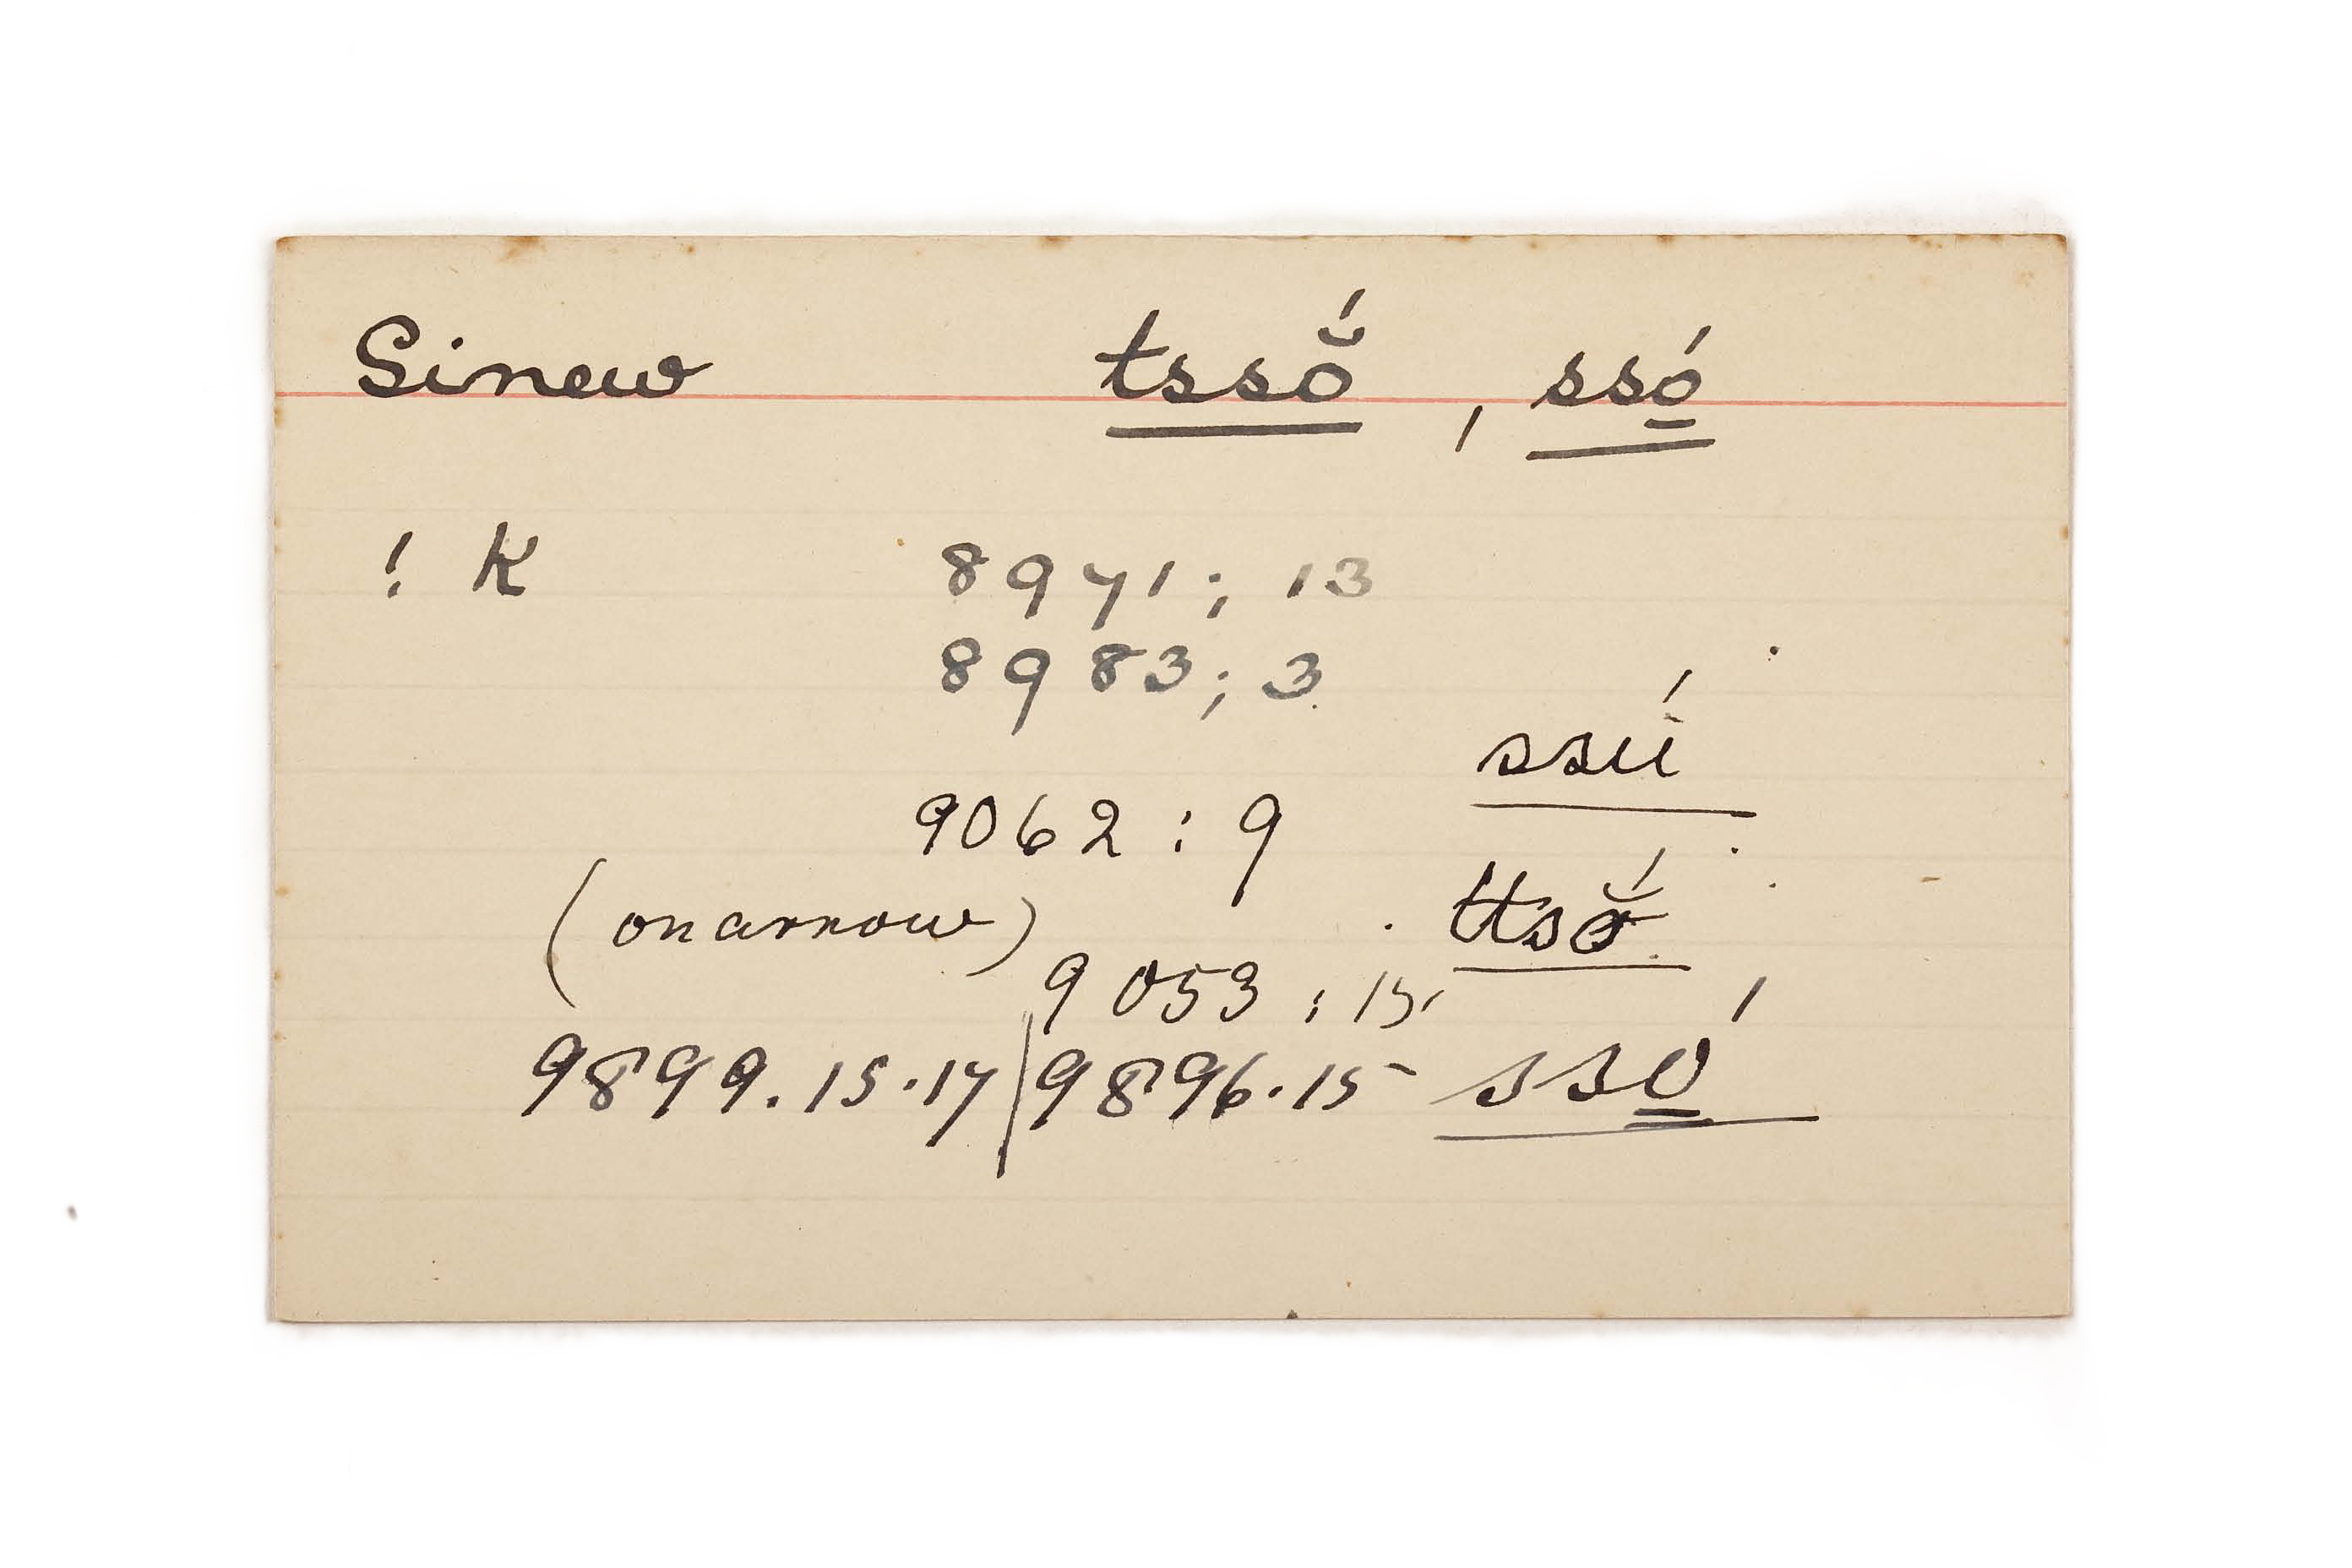 Sinew tssŏ́, ssó̱
! K 8971; 13
8983; 3
ssú
9062 : 9
(on arrow) ttsŏ́
9053 ; 15,
9899.15.17 | 9896.15 ssó̱